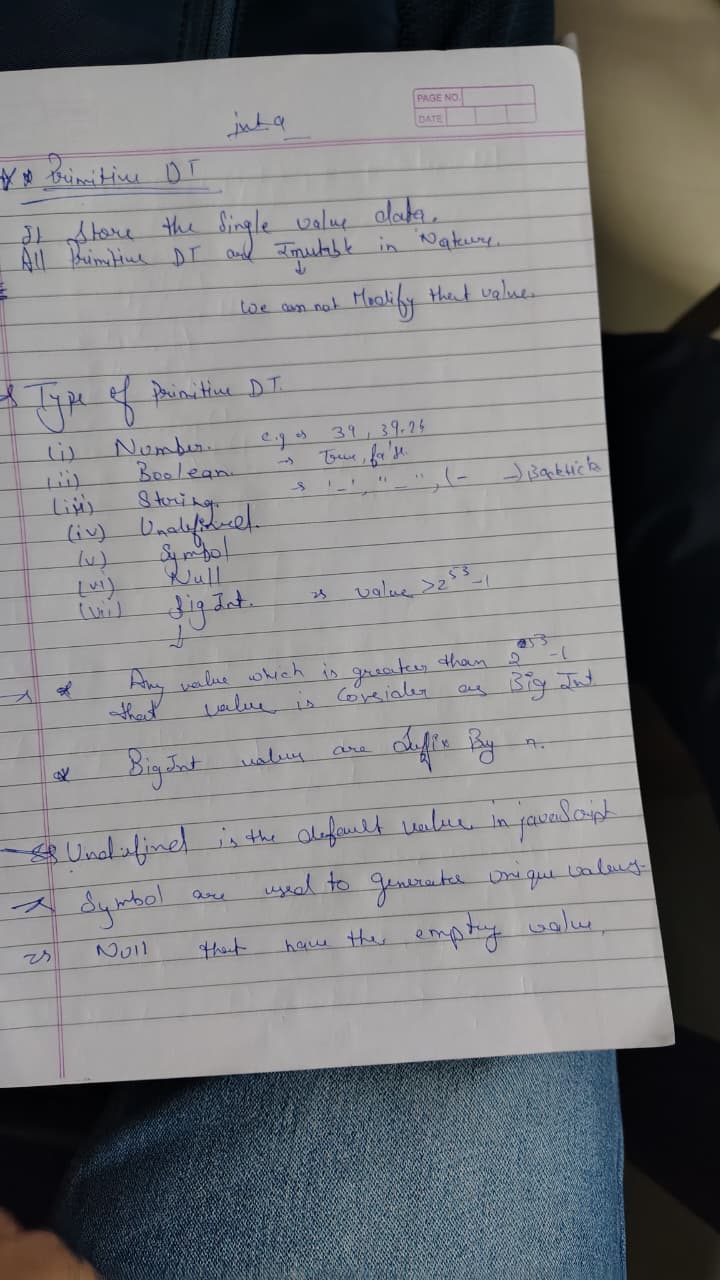 PAGE NO.
DATE
int a
Primitive DT
It Store the Single value data.
All Primitive DT are Imutable in Nature.
↓
We can not Modify that value.
Type of Primitive DT.
(i) Number. e.g → 39, 39.26
(ii) Boolean. → True, false
(iii) String. → '-', "-", (- -) Backtick
(iv) Undefined.
(v) Symbol
(vi) Null
(vii) Big Int. => value >2^53-1
↓
→ * Any value which is greater than 2^53-1
that value is Consider as Big Int
* Big Int values are Suffix By n.
Undefined is the default value in javaScript
→ Symbol are used to generate unique values
=> Null that have the empty value.